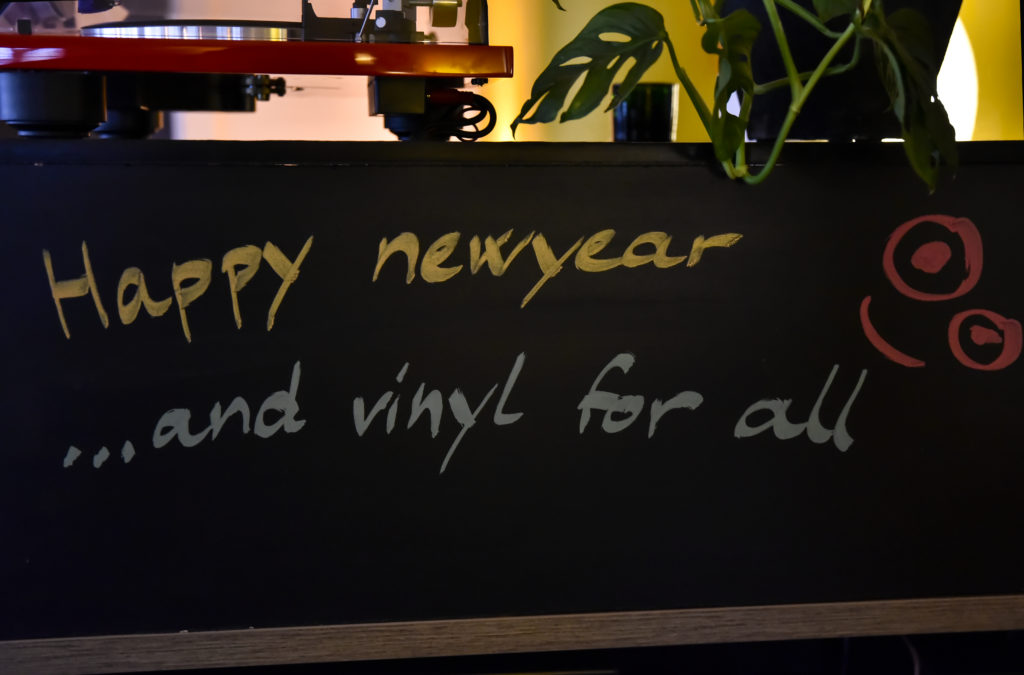 Happy newyear
...and vinyl for all